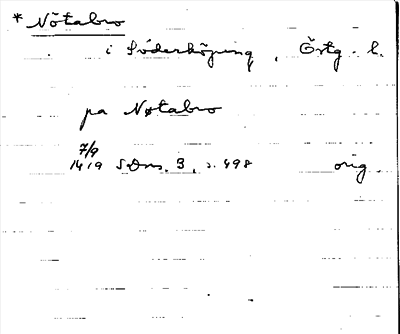 * Nötabro
i Söderköping, Östg. l.
pa Nøtabro
7/9
1419 SDns. 3, s. 498
orig.